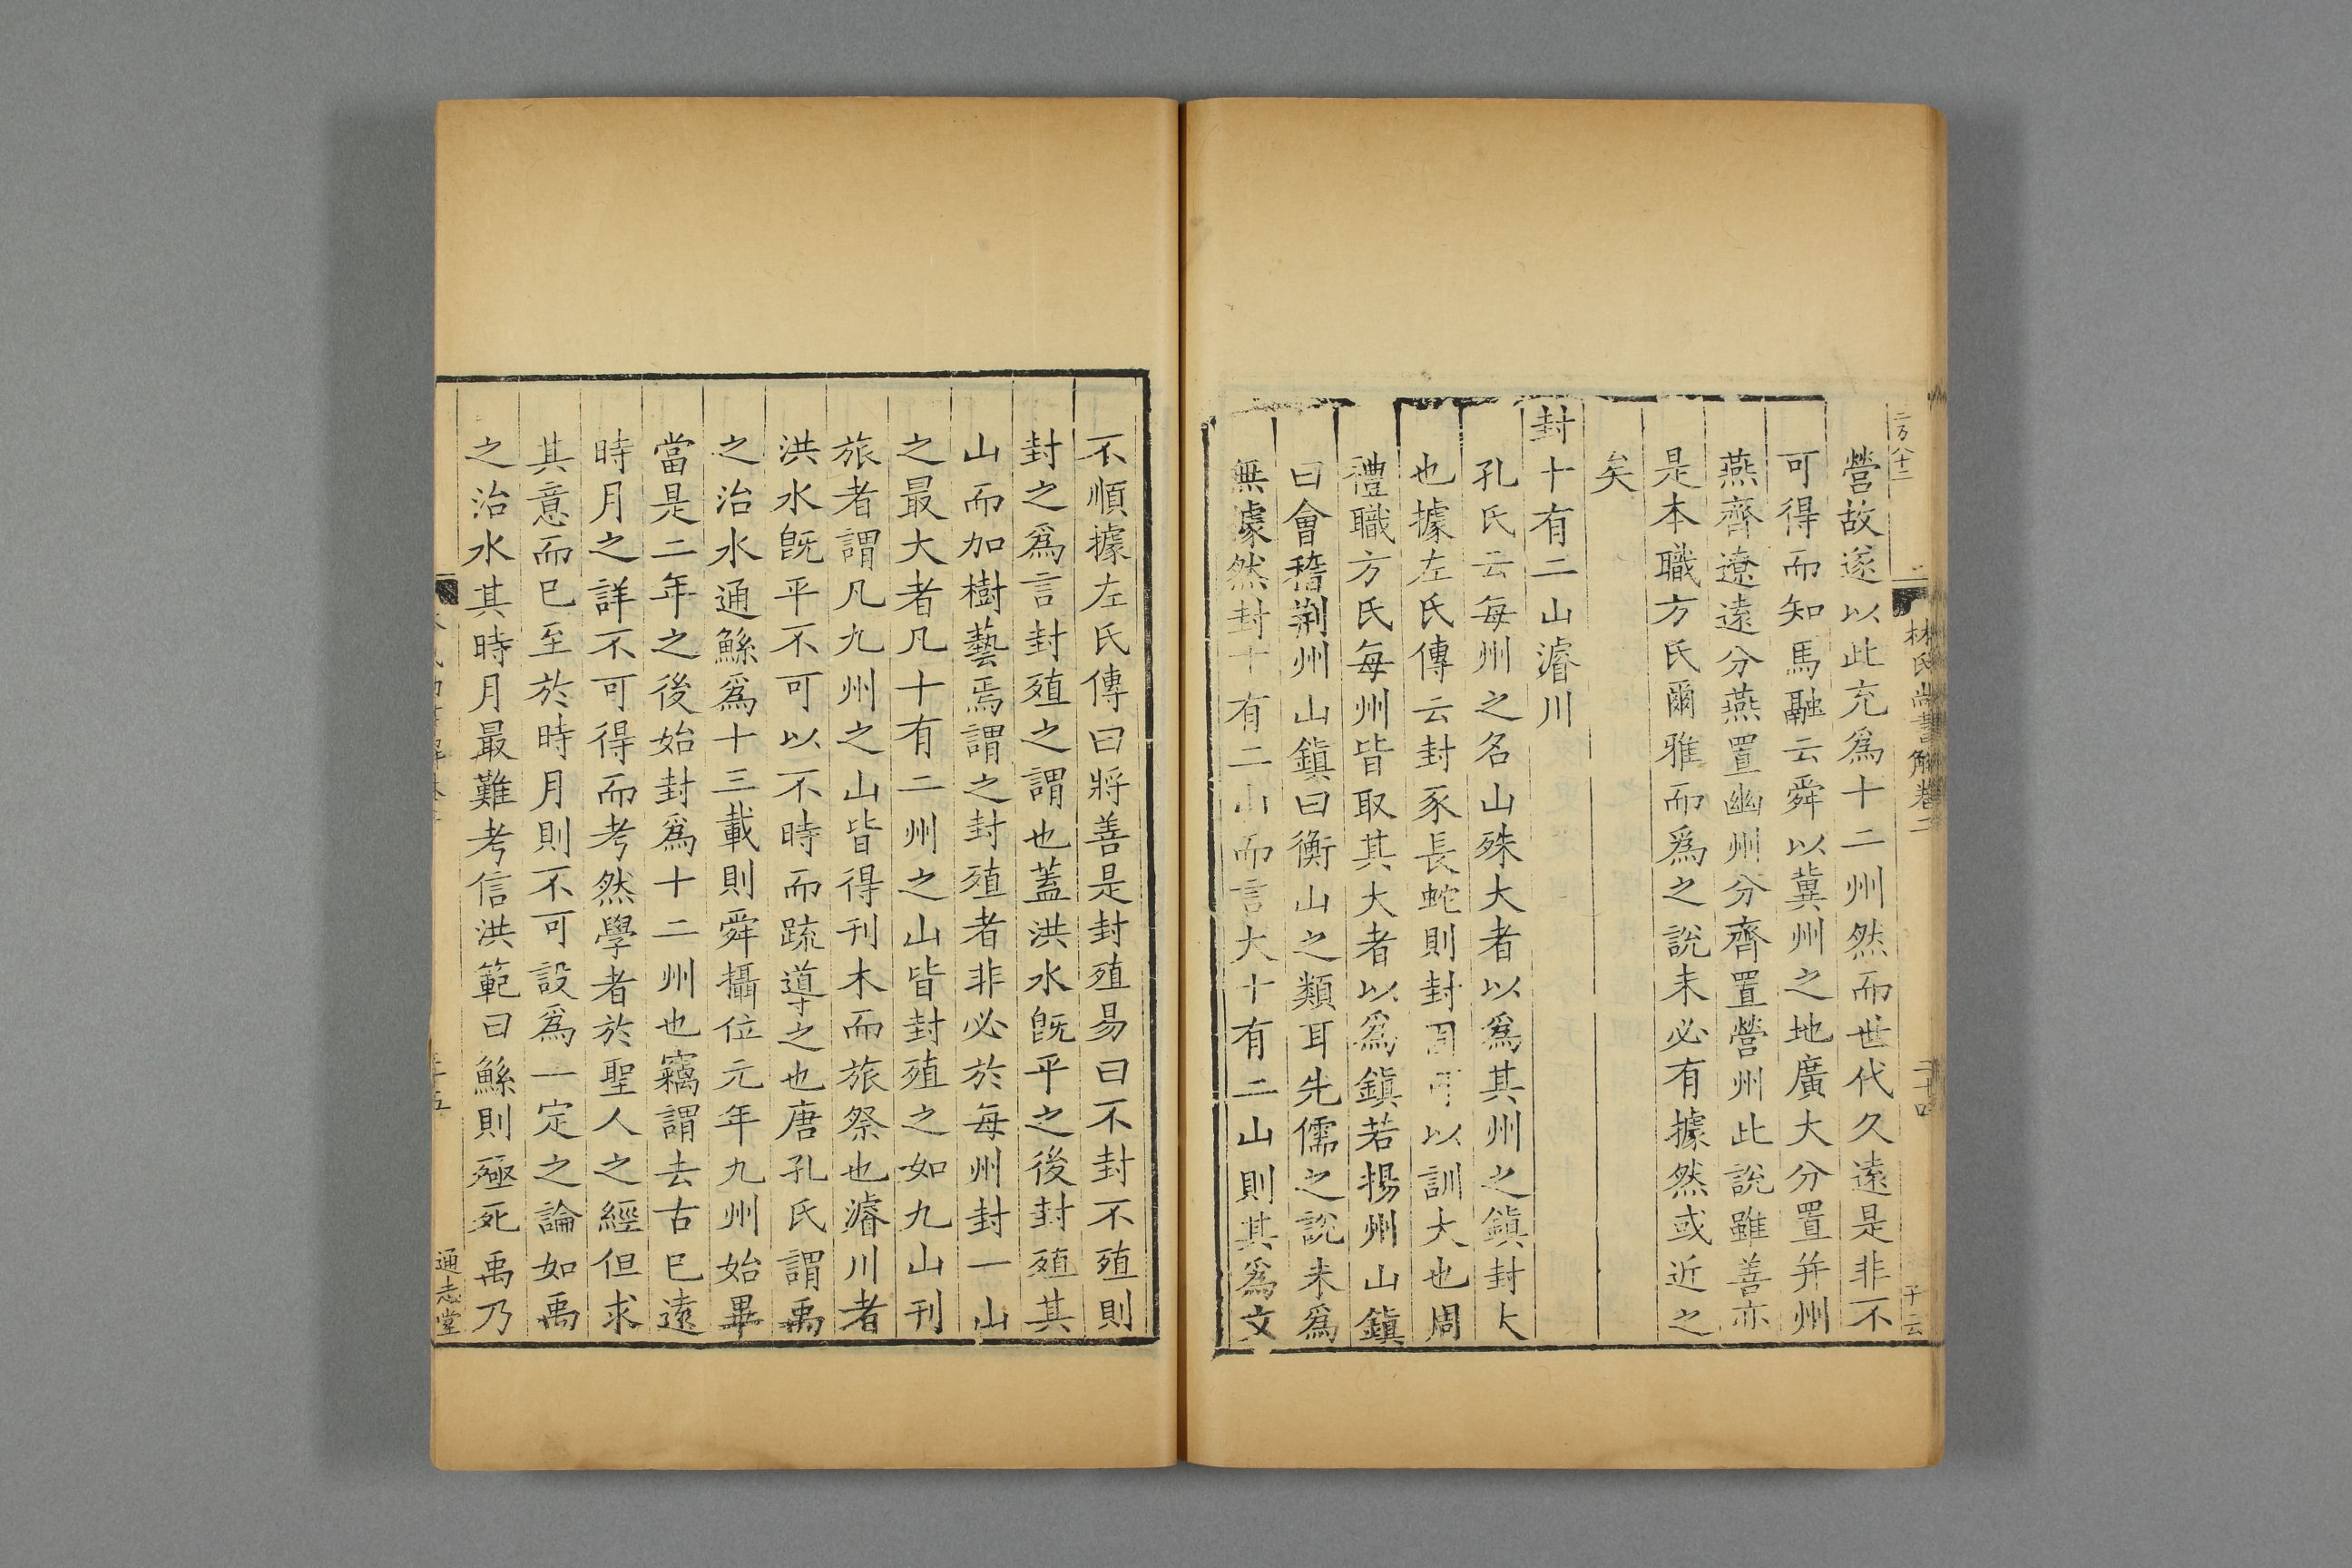 二万八十二
林氏尚書解卷二
二十四
子云
營故遂以此充爲十二州然而世代久遠是非不
可得而知馬融云舜以冀州之地廣大分置并州
燕齊遼遠分燕置幽州分齊置營州此說雖善亦
是本職方氏爾雅而爲之說未必有據然或近之
矣
封十有二山濬川
孔氏云每州之名山殊大者以爲其州之鎭封大
也據左氏傳云封豕長蛇則封固可以訓大也周
禮職方氏每州皆取其大者以爲鎭若揚州山鎭
曰會稽荆州山鎭曰衡山之類耳先儒之說未爲
無據然封十有二山而言大十有二山則其爲文
不順據左氏傳曰將善是封殖易曰不封不殖則
封之爲言封殖之謂也蓋洪水旣平之後封殖其
山而加樹藝焉謂之封殖者非必於每州封一山
之最大者凡十有二州之山皆封殖之如九山刊
旅者謂凡九州之山皆得刊木而旅祭也濬川者
洪水旣平不可以不時而疏導之也唐孔氏謂禹
之治水通鯀爲十三載則舜攝位元年九州始畢
當是二年之後始封爲十二州也竊謂去古已遠
時月之詳不可得而考然學者於聖人之經但求
其意而已至於時月則不可設爲一定之論如禹
之治水其時月最難考信洪範曰鯀則殛死禹乃
通志堂